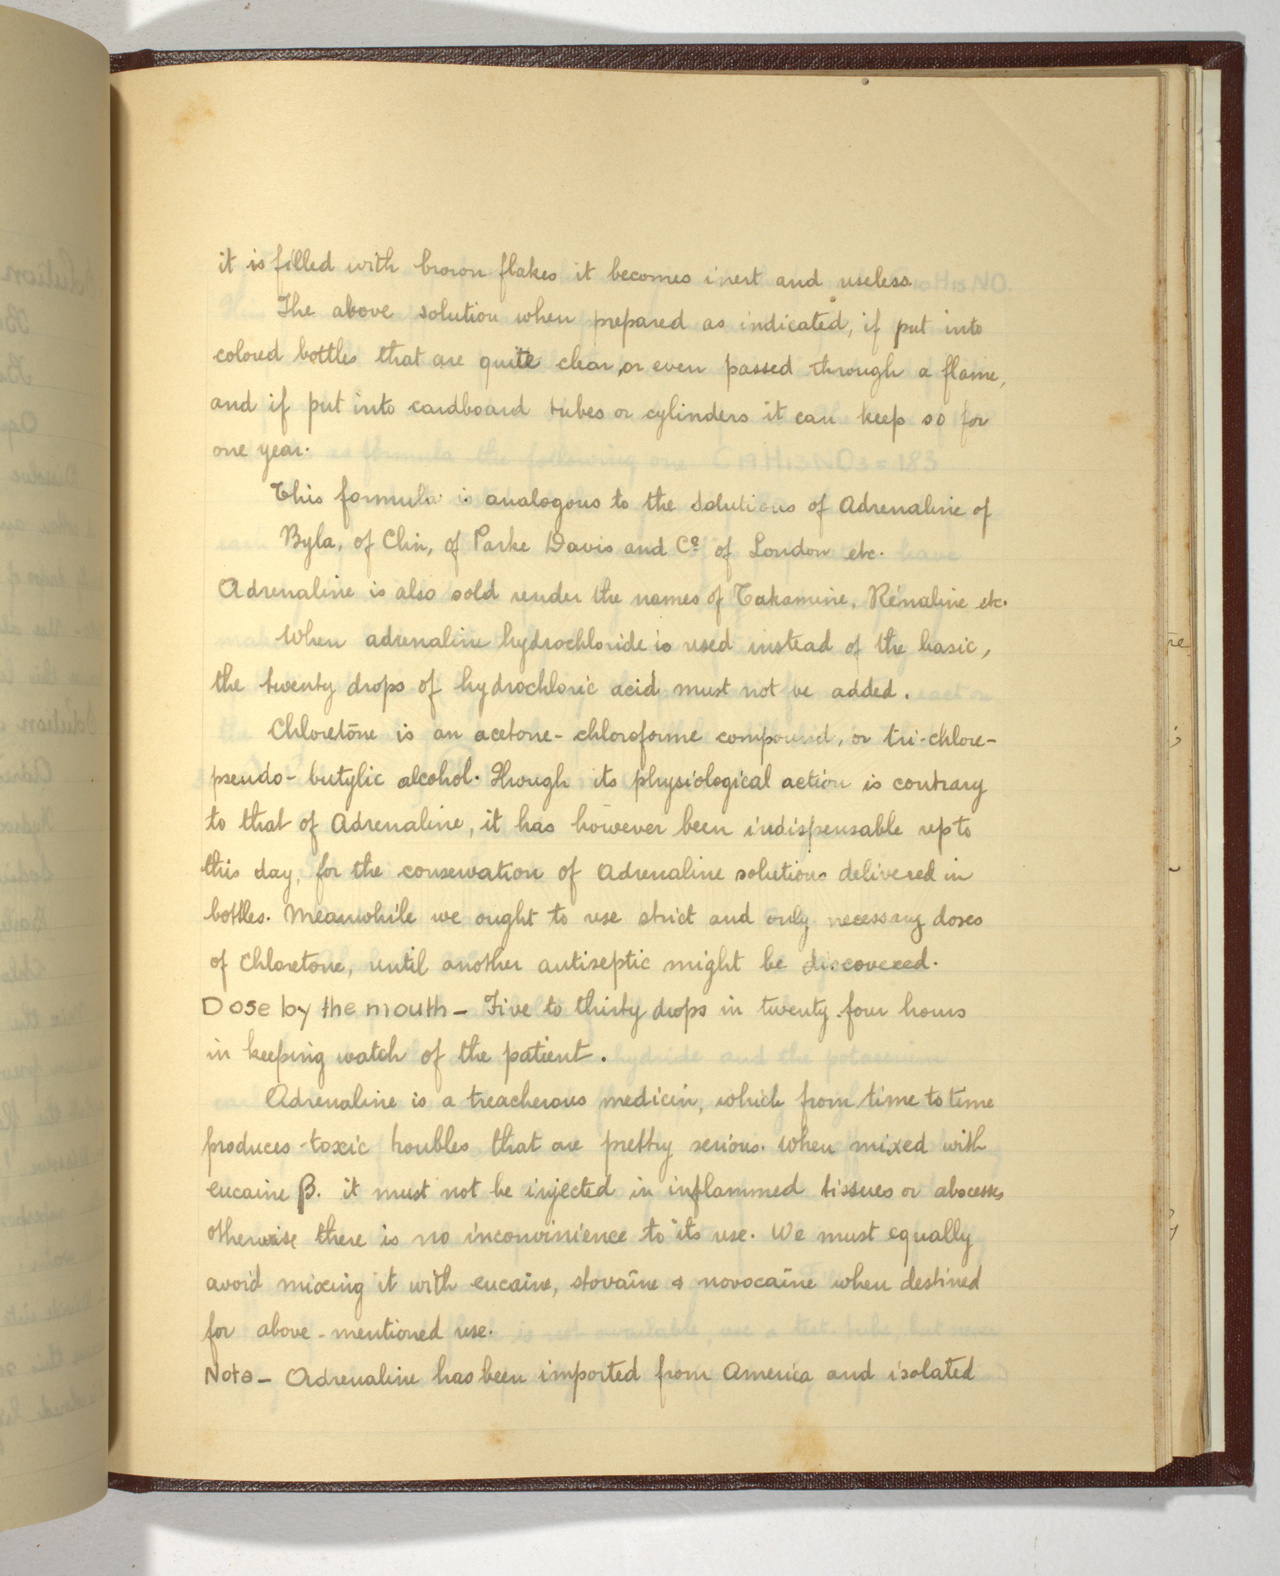 it is filled with brown flakes it becomes inert and useless.
The above solution when prepared as indicated, if put into
colored bottles that are quite clear, or even passed through a flame,
and if put into cardboard tubes or cylinders it can keep so for
one year.
This formula is analogous to the solutions of Adrenaline of
Byla, of Clin, of Parke Davis and Co of London etc.
Adrenaline is also sold under the names of Takamine, Rénaline etc.
When adrenaline hydrochloride is used instead of the basic,
the twenty drops of hydrochloric acid must not be added.
Chloretōne is an acetone-chloroforme compound, or tri-chlore-
pseudo-butylic alcohol. Though its physiological action is contrary
to that of Adrenaline, it has however been indispensable up to
this day, for the conservation of Adrenaline solutions delivered in
bottles. Meanwhile we ought to use strict and only necessary doses
of Chloretone, until another antiseptic might be discovered.
Dose by the mouth - Five to thirty drops in twenty four hours
in keeping watch of the patient.
Adrenaline is a treacherous medicin, which from time to time
produces toxic troubles that are pretty serious. When mixed with
eucaine β. it must not be injected in inflammed tissues or abscesses
otherwise there is no inconvinience to its use. We must equally
avoid mixing it with eucaine, stovaïne & novocaïne when destined
for above-mentioned use.
Nota - Adrenaline has been imported from America and isolated